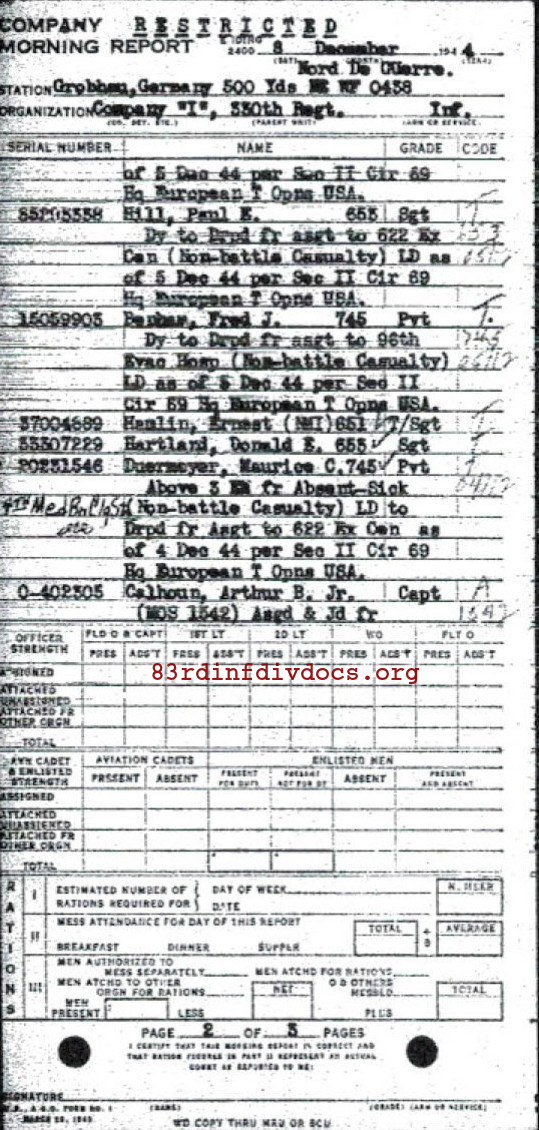 COMPANY RESTRICTED
MORNING REPORT ENDING 2400 8 December 1944
Nord De Guerre.
STATION Grobhau, Germany 500 Yds NE WF 0438
ORGANIZATION Company "I", 330th Regt. Inf.
(CO. DET. ETC.) (PARENT UNIT) (ARM OR SERVICE)
SERIAL NUMBER NAME GRADE CODE
of 5 Dec 44 per Sec II Cir 69
Hq European T Opns USA.
Hill, Paul E. 653 Sgt
Dy to Drpd fr asgt to 622 Ex
Cen (Non-battle Casualty) LD as
of 5 Dec 44 per Sec II Cir 69
Hq European T Opns USA.
15059903 Fred J. 745 Pvt
Dy to Drpd fr asgt to 96th
Evac Hosp (Non-battle Casualty)
LD as of 5 Dec 44 per Sec II
Cir 69 Hq European T Opns USA.
37004689 Hamlin, Ernest (NMI) 651 T/Sgt
33307229 Hartland, Donald E. 653 Sgt
20231546 Duermeyer, Maurice C. 745 Pvt
Above 3 EM fr Absent-Sick
(Non-battle Casualty) LD to
Drpd fr Asgt to 622 Ex Cen as
of 4 Dec 44 per Sec II Cir 69
Hq European T Opns USA.
0-402305 Calhoun, Arthur B. Jr. Capt A
(MOS 1542) Asgd & Jd fr 1542
OFFICER STRENGTH FLD O & CAPT 1ST LT 2D LT WO FLT O
PRES ABS'T PRES ABS'T PRES ABS'T PRES ABS'T PRES ABS'T
83rdinfdivdocs.org
ASSIGNED
ATTACHED UNASSIGNED
ATTACHED FR OTHER ORGN
TOTAL
AVN CADET & ENLISTED STRENGTH AVIATION CADETS ENLISTED MEN
PRESENT ABSENT PRESENT FOR DUTY PRESENT NOT FOR DY ABSENT PRESENT AND ABSENT
ASSIGNED
ATTACHED UNASSIGNED
ATTACHED FR OTHER ORGN
TOTAL
RATIONS
I ESTIMATED NUMBER OF RATIONS REQUIRED FOR { DAY OF WEEK
DATE
II MESS ATTENDANCE FOR DAY OF THIS REPORT TOTAL ÷ 3 AVERAGE
BREAKFAST DINNER SUPPER
III MEN AUTHORIZED TO MESS SEPARATELY MEN ATCHD FOR RATIONS
MEN ATCHD TO OTHER ORGN FOR RATIONS NET O & OTHERS MESSED TOTAL
MEN PRESENT LESS PLUS
PAGE 2 OF 3 PAGES
I CERTIFY THAT THIS MORNING REPORT IS CORRECT AND
THAT RATION FIGURES IN PART II REPRESENT AN ACTUAL
COUNT AS REPORTED TO ME:
SIGNATURE
W.D., A.G.O. FORM NO. 1 (NAME) (GRADE) (ARM OR SERVICE)
WD COPY THRU MRU OR BCU